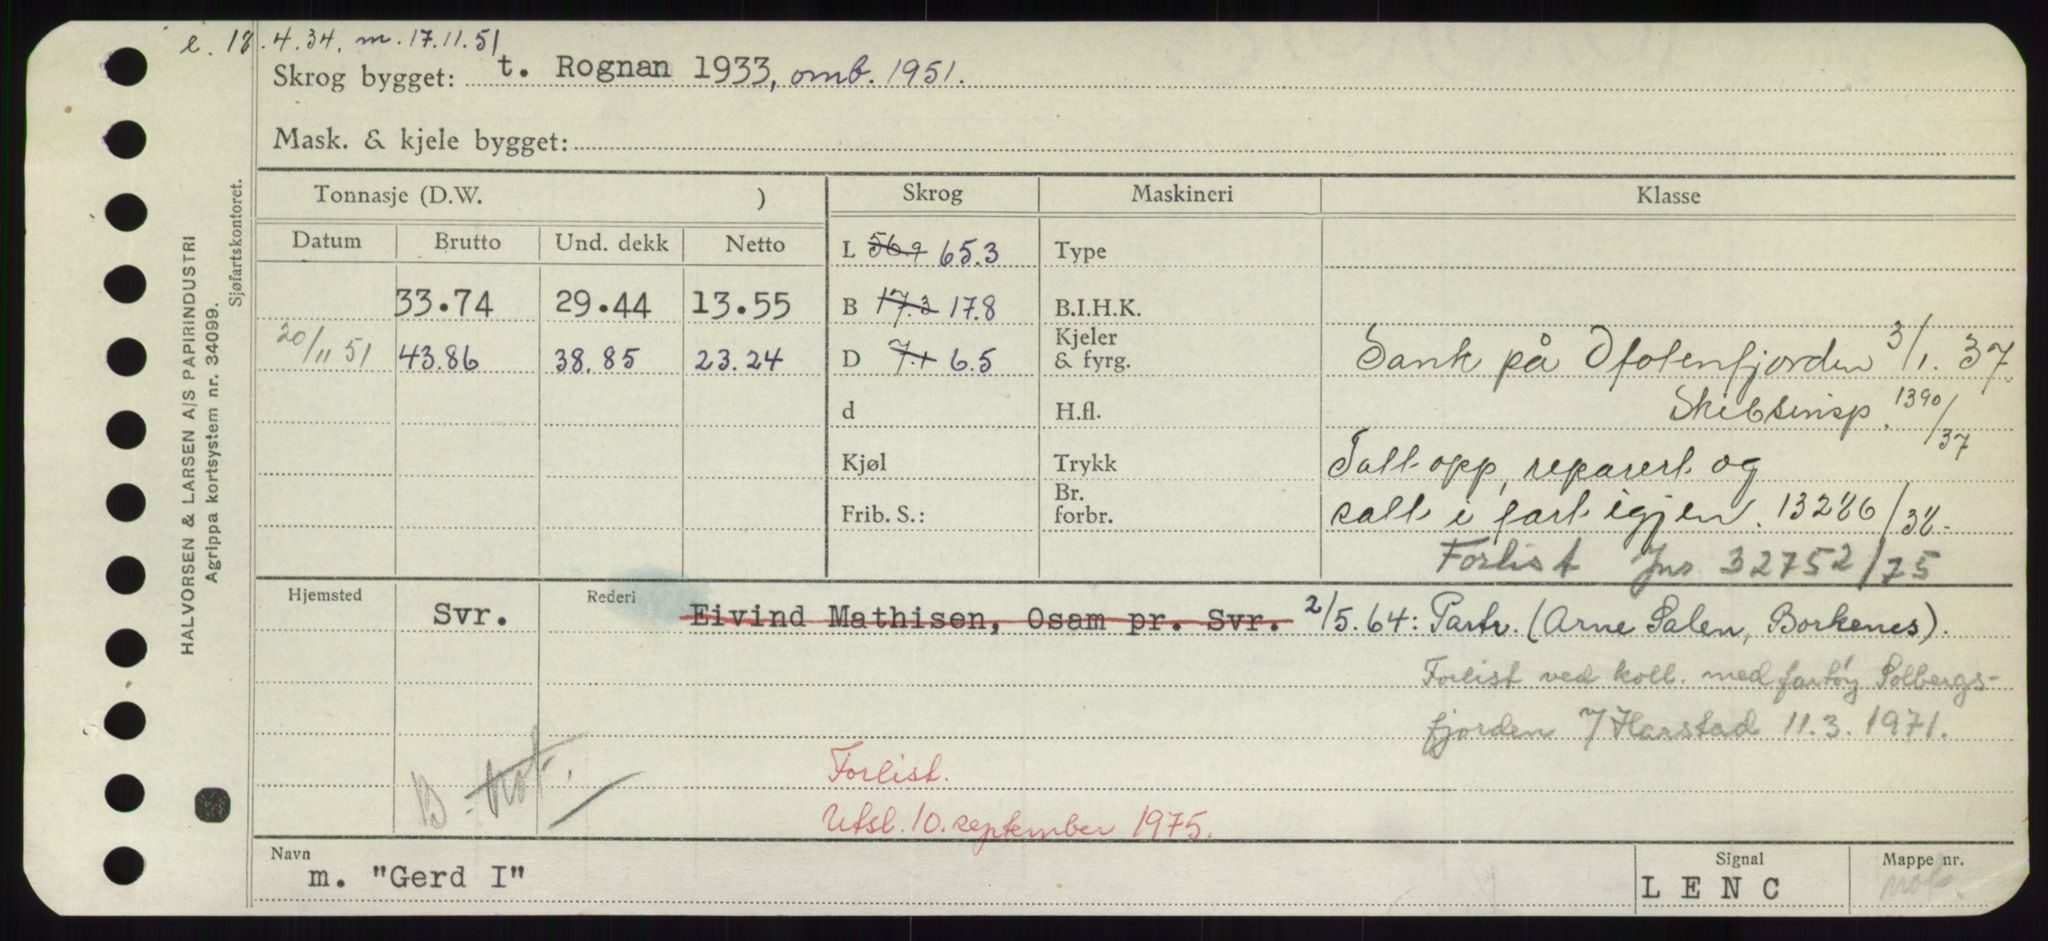 e. 18.4.34. m. 17.11.51
Skrog bygget: t. Rognan 1933, omb. 1951.
Mask. & kjele bygget:
HALVORSEN & LARSEN A/S PAPIRINDUSTRI
Agrippa kortsystem nr. 34099.
Sjøfartskontoret.
Tonnasje (D.W. ) Skrog Maskineri Klasse
Datum Brutto Und. dekk Netto L 56.9 65.3 Type
33.74 29.44 13.55 B 17.3 17.8 B.I.H.K.
20/11 51 43.86 38.85 23.24 D 7.1 6.5 Kjeler & fyrg. Sank på Ofotenfjorden 3/1. 37.
d H.fl. Skibsinsp. 1390/37
Kjøl Trykk Tatt opp, reparert og
Frib. S.: Br. forbr. satt i fart igjen. 13286/38.
Forlist Jnr 32752/75
Hjemsted Svr. Rederi Eivind Mathisen, Osam pr. Svr. 2/5.64: Partr. (Arne Salen, Borkenes).
Forlist ved koll. med fartøy Solbergs-
fjorden 7/Harstad 11.3.1971.
Forlist.
Utsl. 10. september 1975.
Navn m. "Gerd I" Signal LENC Mappe nr.